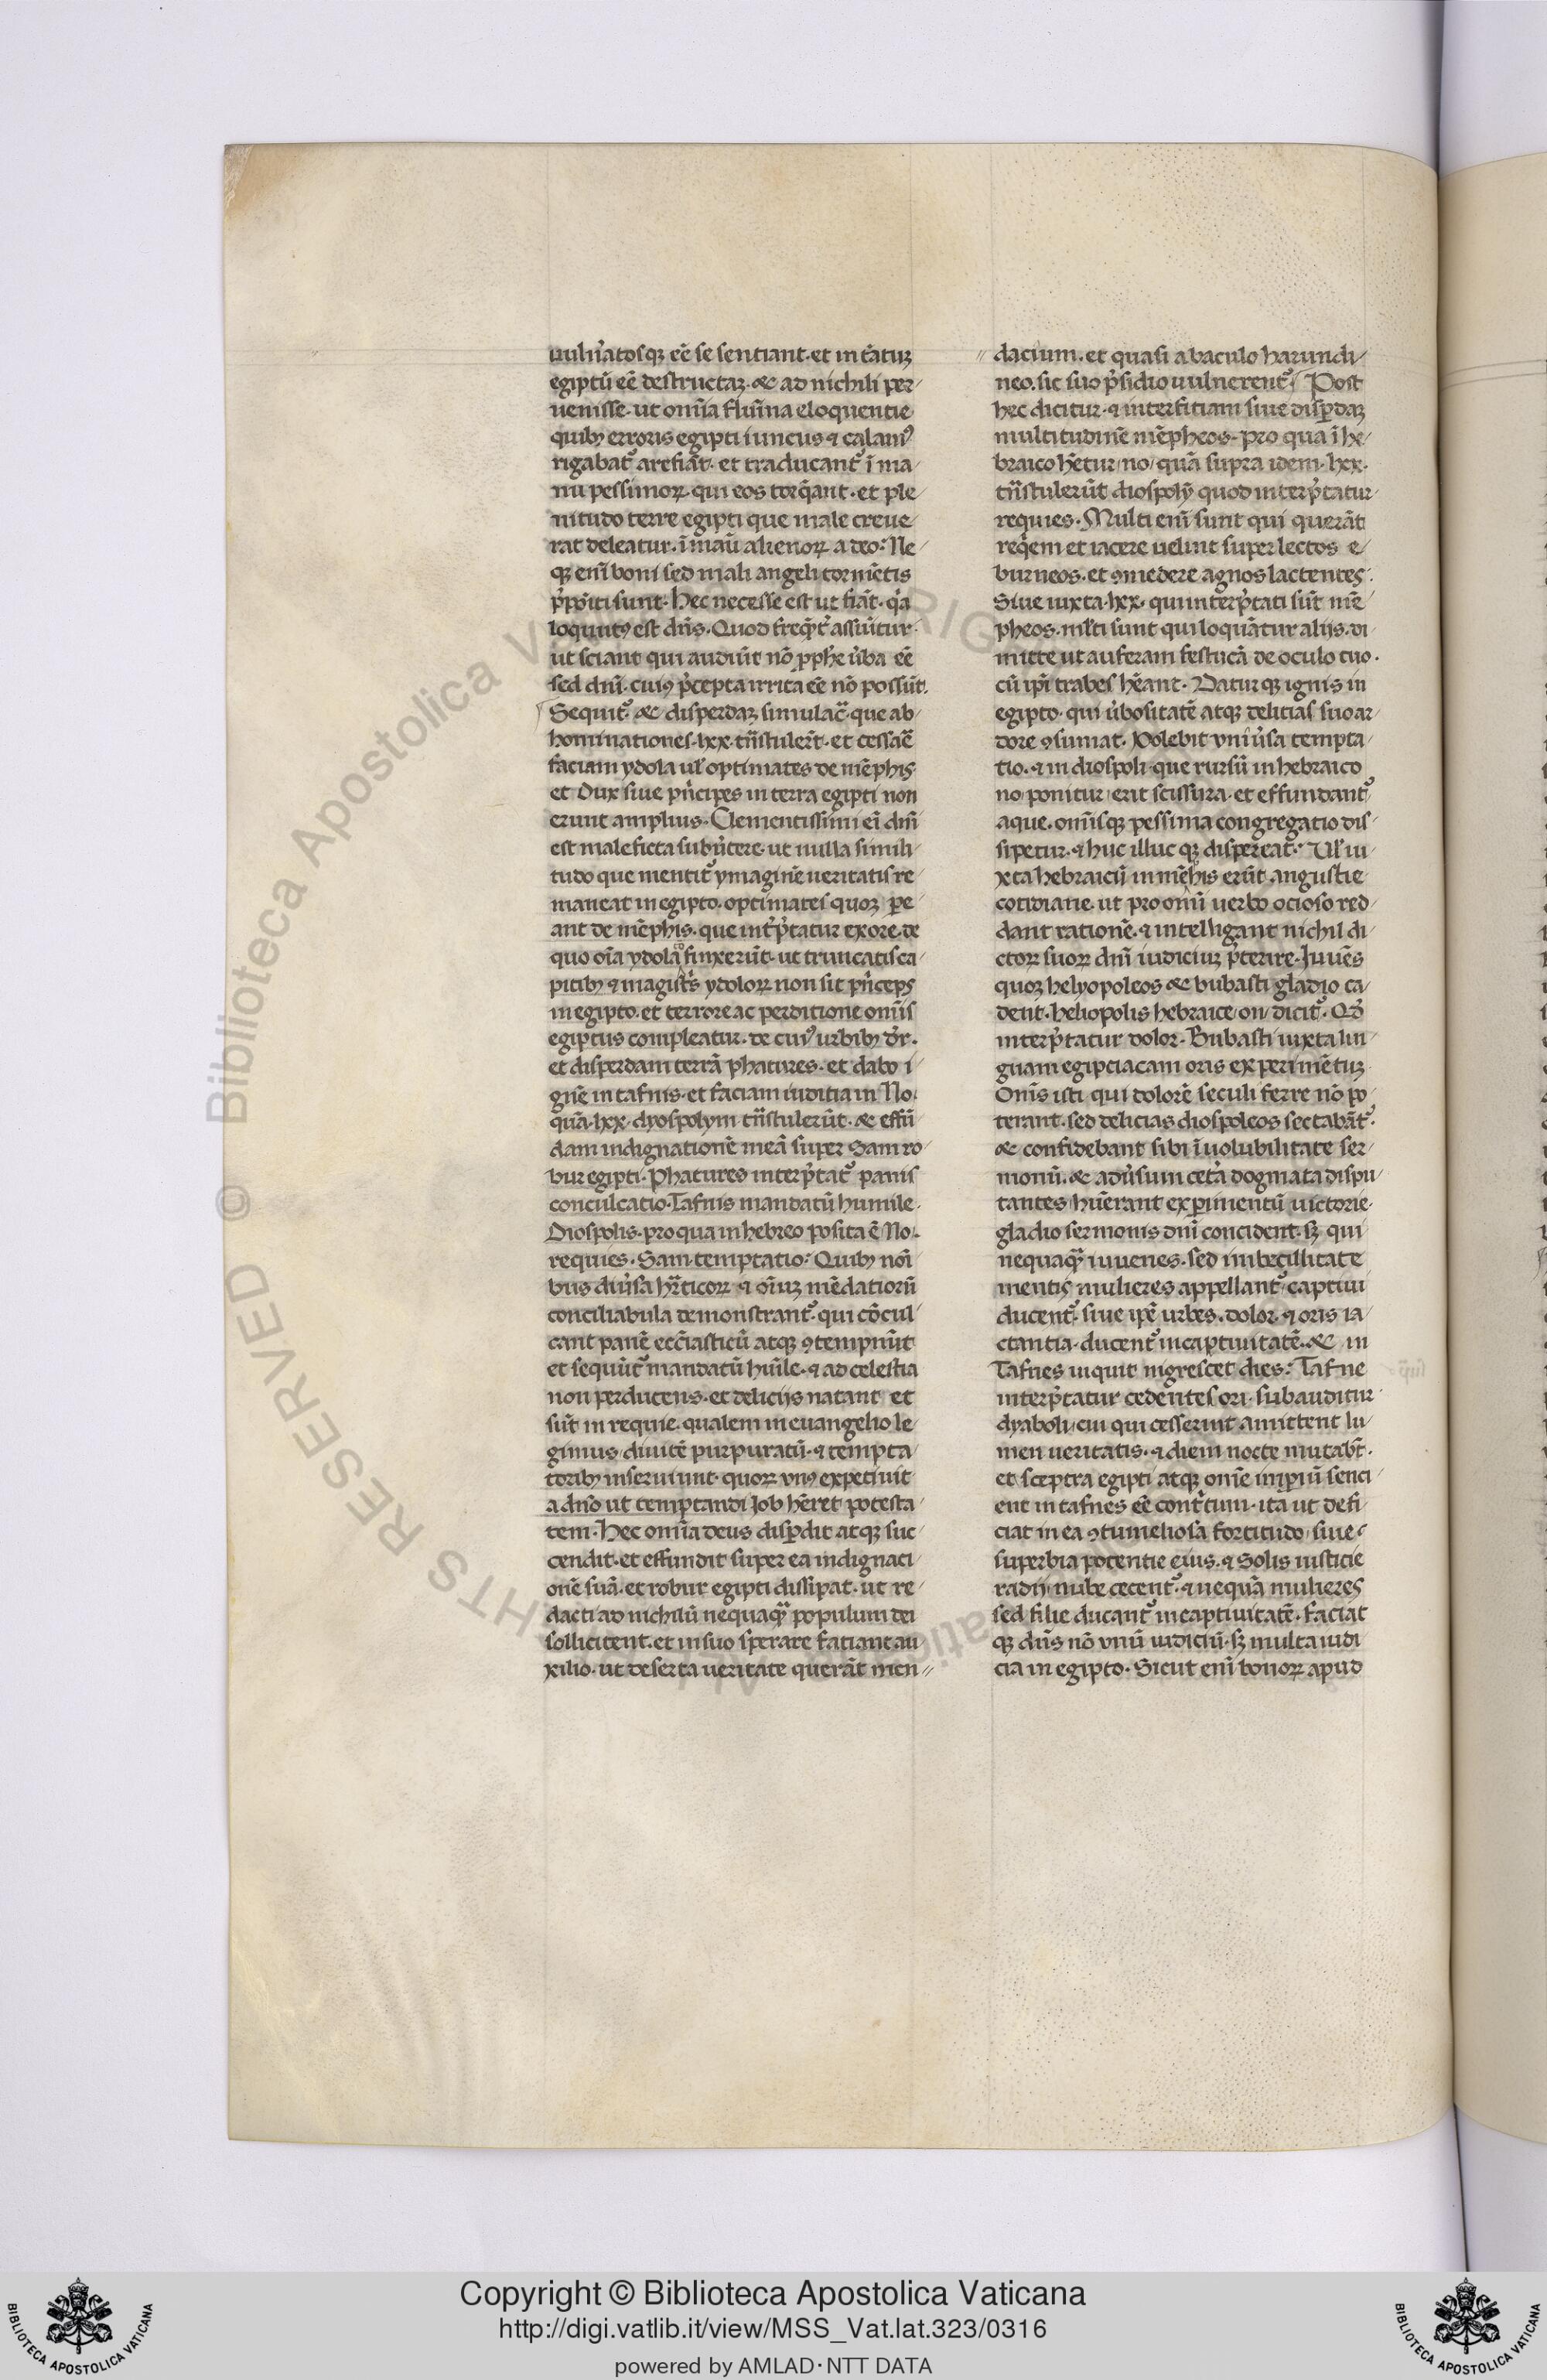 uulnʼatosqꝫ eē se sentiant. et in tʼatuꝫ
egiptū eē destructaꝫ. &c ad nichili per-
uenisse. ut omīa flūina eloquentie
quibꝫ erroris egipti iuncus ⁊ calamꝰ
rigabatᷣ arefiāt. et traducantᷣ ī ma-
nu pessimoꝝ. qui eos torq̄ant. et ple-
nitudo terre egipti que male creue-
rat deleatur. ī maū alienoꝝ a deo. Ne-
qꝫ enī boni sed mali angeli tormētis
p̄positi sunt. Hec necesse est ut fiāt. qʼa
loquutꝰ est dn̄s. Quod freq̄tʼ assūitur.
ut sciant qui audiūt nō ꝓphe ūba eē
sed dnī. cuiꝰ p̄cepta irrita eē nō possūt.
Sequitᷣ. &c disperdaꝫ simulacᷓ. que ab-
hominationes. lxx. trīstulert̄. et cessaē
faciam ydola ul̓ optimates de mēphis.
et Dux siue pn̄cipes in terra egipti non
erunt amplius. Clementissimi eī dnī
est maleficta subūtere. ut nulla simili-
tudo que mentitᷣ ymaginē ueritatis re-
maneat in egipto. optimates quoꝫ pe-
ant de mēphis. que intʼp̄tatur ex ore. de
quo oīa ydola finxerūt. ut truncatis ca-
pitibꝫ ⁊ magistʼs ydoloꝝ non sit pn̄ceps
in egipto. et terrore ac perditione omīs
egiptus compleatur. de cuiꝰ urbibꝫ dʼr.
et disperdam terrā phatures. et dabo i-
gnē in tafnis. et faciam iuditia in No.
quā. lxx. dyospolym trīstulerūt. &c effū
dam indignationē meā super Sam ro-
bur egipti. Phatures interp̄tatᷣ panis
conculcatio. Tafnis mandatū humile.
Diospolis. pro qua in hebreo posita ē No.
requies. Sam temptatio. Quibꝫ noī
bus diūsa hr̄ticoꝝ ⁊ oīuꝫ mēdatiorū
conciliabula demonstrantᷣ. qui cōcul-
cant panē eccīasticū atqꝫ ꝯtempnūt
et sequūtᷣ mandatū huīle. ⁊ ad celestia
non perducens. et delicijs natant et
sūt in requie. qualem in euangelio le-
gimus diuitē purpuratū. ⁊ tempta-
toribꝫ inseruiunt. quoꝝ vnꝰ expetiuit
a dnō ut temptandi Job hēret potesta-
tem. Hec omīa deus disp̄dit atqꝫ suc-
cendit. et effundit super ea indignaci-
onē suā. et robur egipti dissipat. ut re-
dacti ad nichilū nequaqᷓ populum dei
sollicitent. et in suo sperare fatiant au
xilio. ut deserta ueritate querāt men//
dacium. et quasi a baculo harundi-
neo. sic suo p̄sidio uulnerentᷣ. Post
hec dicitur. ⁊ interfitiam siue disp̄daꝫ
multitudinē mēpheos. pro qua ī he-
braico hētur no. quā supra idem. lxx.
trīstulerūt diospolȳ quod interp̄tatur
requies. Multi enī sunt qui querāt
req̄em et iacere uelint super lectos e-
burneos. et ꝯmedere agnos lactentes.
Siue iuxta. lxx. qui interp̄tati sūt mē
pheos. ml̓ti sunt qui loquātur alijs. di
mitte ut auferam festucā de oculo tuo.
cū ipī trabes hēant. Datur qꝫ ignis in
egipto. qui ūbositatē atqꝫ delicias suo ar-
dore ꝯsumat. Dolebit vniūsa tempta-
tio. ⁊ in diospoli. que rursū in hebraico
no ponitur erit scissura. et effundantᷣ
aque. omīsqꝫ pessima congregatio dis-
sipetur. ⁊ huc illuc qꝫ dispereat. Ul̓ iu-
xta hebraicū in mēphis erūt angustie
cotidiane. ut pro omī uerbo ocioso red-
dant rationē. ⁊ intelligant nichil di-
ctoꝝ suoꝝ dnī iudiciuꝫ p̄terire. Juuēs
quoꝫ helyopoleos &c bubasti gladio ca-
dent. heliopolis hebraice on dicitᷣ. Qd̓
interp̄tatur dolor. Bubasti iuxta lin-
guam egipciacam oris experimētuꝫ.
Onīs isti qui dolorē seculi ferre nō po
terant. sed delicias diospoleos sectabātᷣ.
&c confidebant sibi ī uolubilitate ser-
monū. &c adūsum cetʼa dogmata dispu-
tantes huērant exꝑimentū uictorie.
gladio sermonis dnī concident. sꝫ qui
nequaqᷓ iuuenes. sed imbecillitate
mentis mulieres appellantᷣ. captiui
ducentᷣ. siue ipē urbes. dolor. ⁊ oris ia-
ctantia. ducentᷣ in captiuitatē. &c in
Tafnes inquit nigrescet dies. Tafne
interp̄tatur cedentes ori. subauditur
dyaboli. cui qui cesserint amittent lu-
men ueritatis. ⁊ diem nocte mutabt̄.
et sceptra egipti atqꝫ onīe imꝑiū senci-
ent in tafnes eē contʼtum. ita ut defi-
ciat in ea ꝯtumeliosa fortitudo. siue
superbia potentie eius. ⁊ Solis iusticie
radij nube tegentᷣ. ⁊ nequā mulieres
sed filie ducantᷣ in captiuitatē. faciat
qꝫ dn̄s nō vnū iudiciū. sꝫ multa iudi
cia in egipto. Sicut enī bonoꝝ apud
© Biblioteca Apostolica Vaticana ALL RIGHTS RESERVED
Copyright © Biblioteca Apostolica Vaticana
http://digi.vatlib.it/view/MSS_Vat.lat.323/0316
powered by AMLAD·NTT DATA
BIBLIOTECA APOSTOLICA VATICANA
BIBLIOTECA APOSTOLICA VATICANA